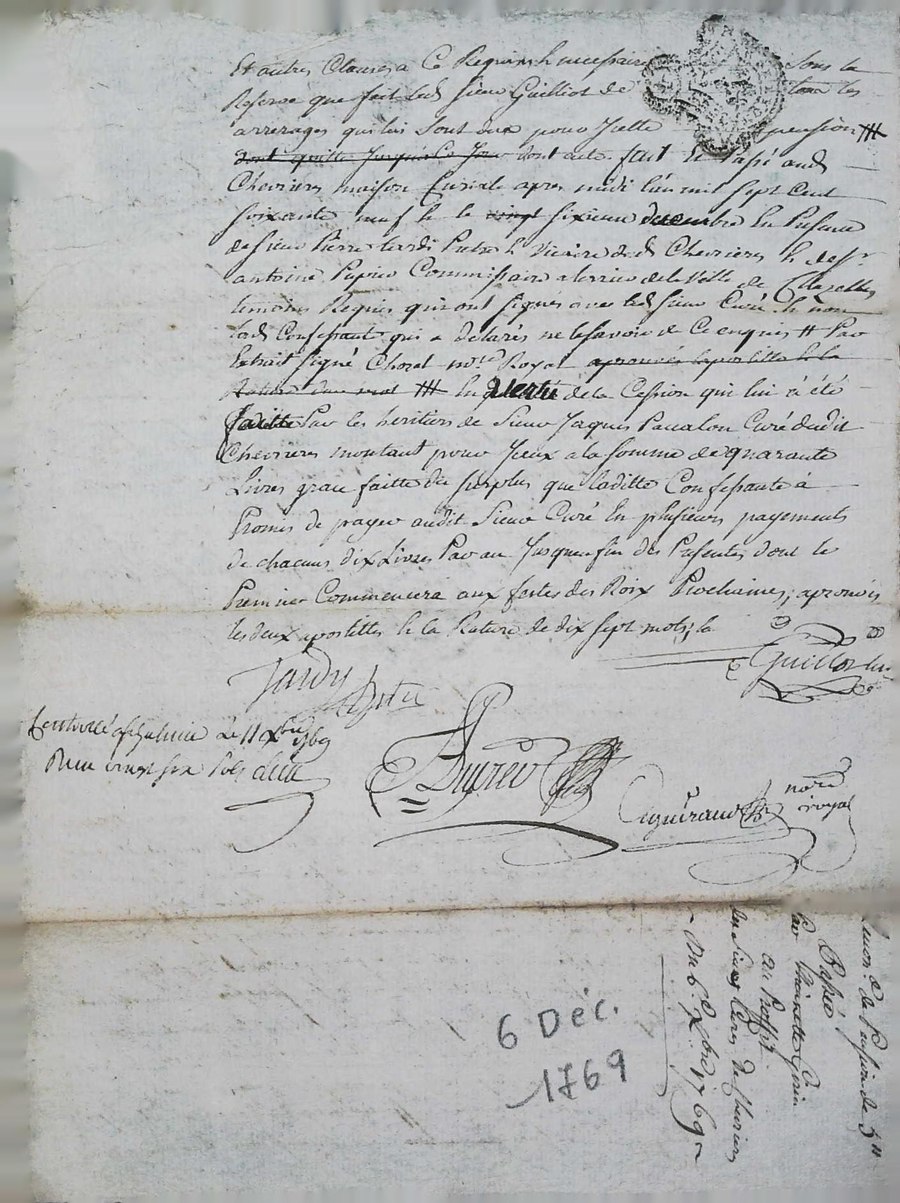 Et autres Clauses a Ce Requises h necessaires sous la
Reserve que fait led sieur Guilliot de tous les
arrerages qui lui sont dux pour Jcelle pension #
dont quitte Jusqua Ce Jour dont acte fait et passé aud
Chevrieres maison Curiale apres midi l'an mil sept Cent
soixante neuf h le vingt sixieme decembre En Presence
de sieur Pierre tardi Pretre h Vicaire dud Chevrieres h de sr
antoine Papire Commissaire a terrier de la Ville de Chazelles
temoins Requis qui ont signés avec led sieur Curé h non
lad Confessant qui a declarés ne le savoir de Ce enquis # Par
Extrait signé Chorel nore Royal aprouvés
mot # En vertu de la Cession qui lui à été
faditte Par les heritiers de sieur Jaques Pavalon Curé dudit
Chevrieres montant pour Jceux a la somme de quarante
Livres grace faitte du surplus que laditte Confessante à
Promis de payer audit sieur Curé En plusieurs payements
de chacuns dix Livres Par an Jusqu'en fin des Presentes dont le
Premier Commencera aux festes des Roix Prochaines; aprouvés
les deux apostilles h la Rature de dix sept mots; la
Guilliot Curé
Tardy ptre
Controllé a St Galmier Le 11 Xbre 1769
Reçu vingt six sols
nore
royal
6 Déc.
1769
de Pension de 5ll
Passé
Par
au Proffit
du Sieur Curé de Chevrieres
Du 6e Xbre 1769